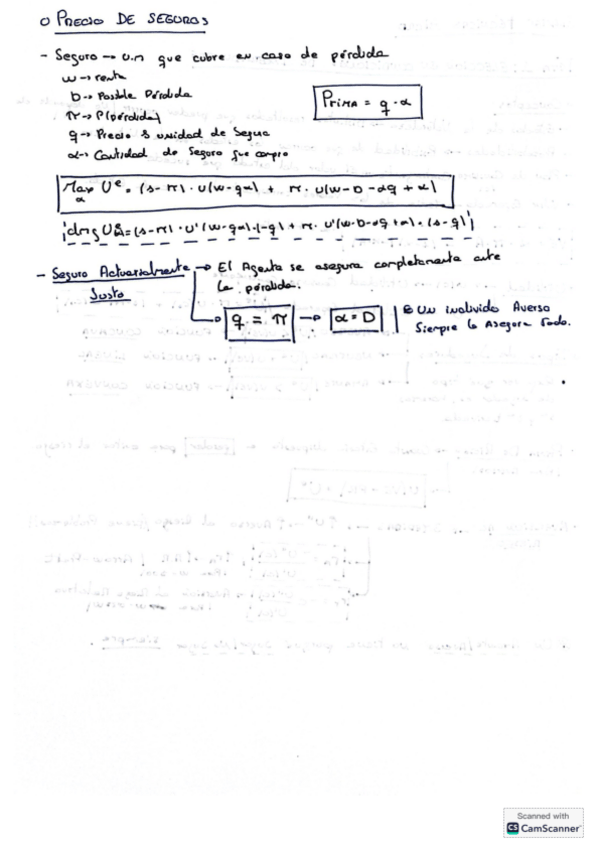 o PRECIO DE SEGUROS
- Seguro → u.m que cubre en caso de pérdida
w → renta
D → Posible Pérdida
π → P(pérdida)
q → Precio $ unidad de Segur
α → Cantidad de Seguro que compro
PRIMA = q · α
Max U^e = (1-π) · U(w-qα) + π · U(w-D-αq+α)
α
= (1-π) · U'(w-qα)·(-q) + π · U'(w-D-αq+α) · (1-q)
- Seguro Actuarialmente Justo → El Agente se asegura completamente ante
la pérdida.
→ q = π → α = D
Un individuo Averso
Siempre lo Asegura Todo.
Scanned with
CS CamScanner